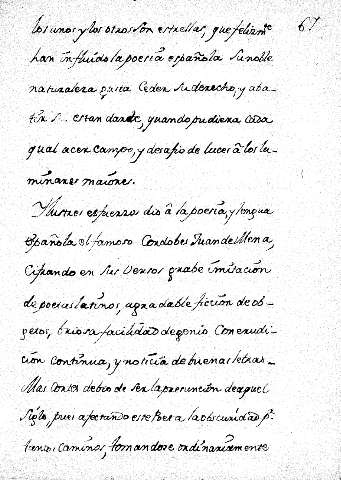 67
los unos y los otros son estrellas, que felizmte
han influido la poesia española su noble
naturaleza gusta Ceder su derecho, y aba-
tir s... estandarte, quando pudiera cada
qual acer campo, y desafio de luces â los lu-
minares maiores.
Yllustres esfuerzos dio â la poesia, y lengua
española el famoso Cordobes Juan de Mena,
Cifrando en sus versos grabe imitacion
de poetas latinos, agradable ficcion de ob-
getos, briosa facilidad de genio con erudi-
cion continua, y noticia de buenas letras.
Mas debio de ser la presuncion de aquel
Siglo, pues afectando este Poeta la obscuridad pr.
caminos, tomandose ordinariamente